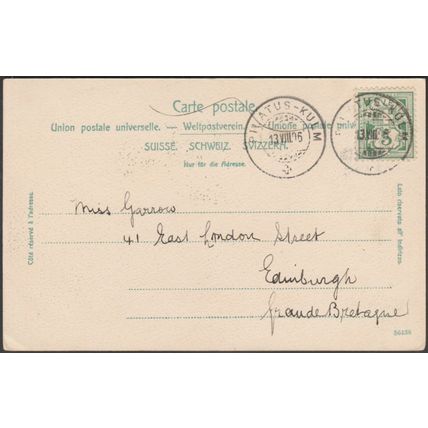 Carte postale.
Union postale universelle. — Weltpostverein. — Unione postale
SUISSE. SCHWEIZ. SVIZZERA.
Nur für die Adresse.
PILATUS-KULM
13.VIII.06
PILATUS-KULM
13.VIII.06
5
Côté réservé à l'adresse.
Lato riservato all' indirizzo.
Miss Garrow
41 East London Street
Edinburgh
Grande Bretagne